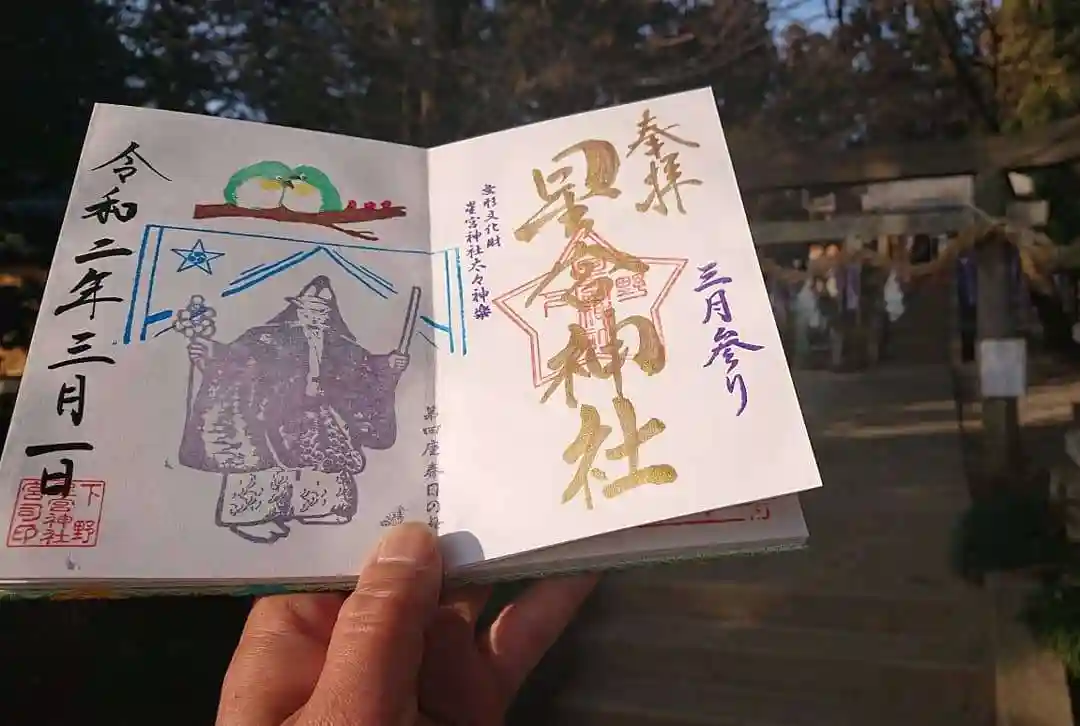 奉拝
星宮神社
三月参り
無形文化財
星宮神社太々神楽
第四座春日の舞
令和二年三月一日
下野
星宮神社
宮司印